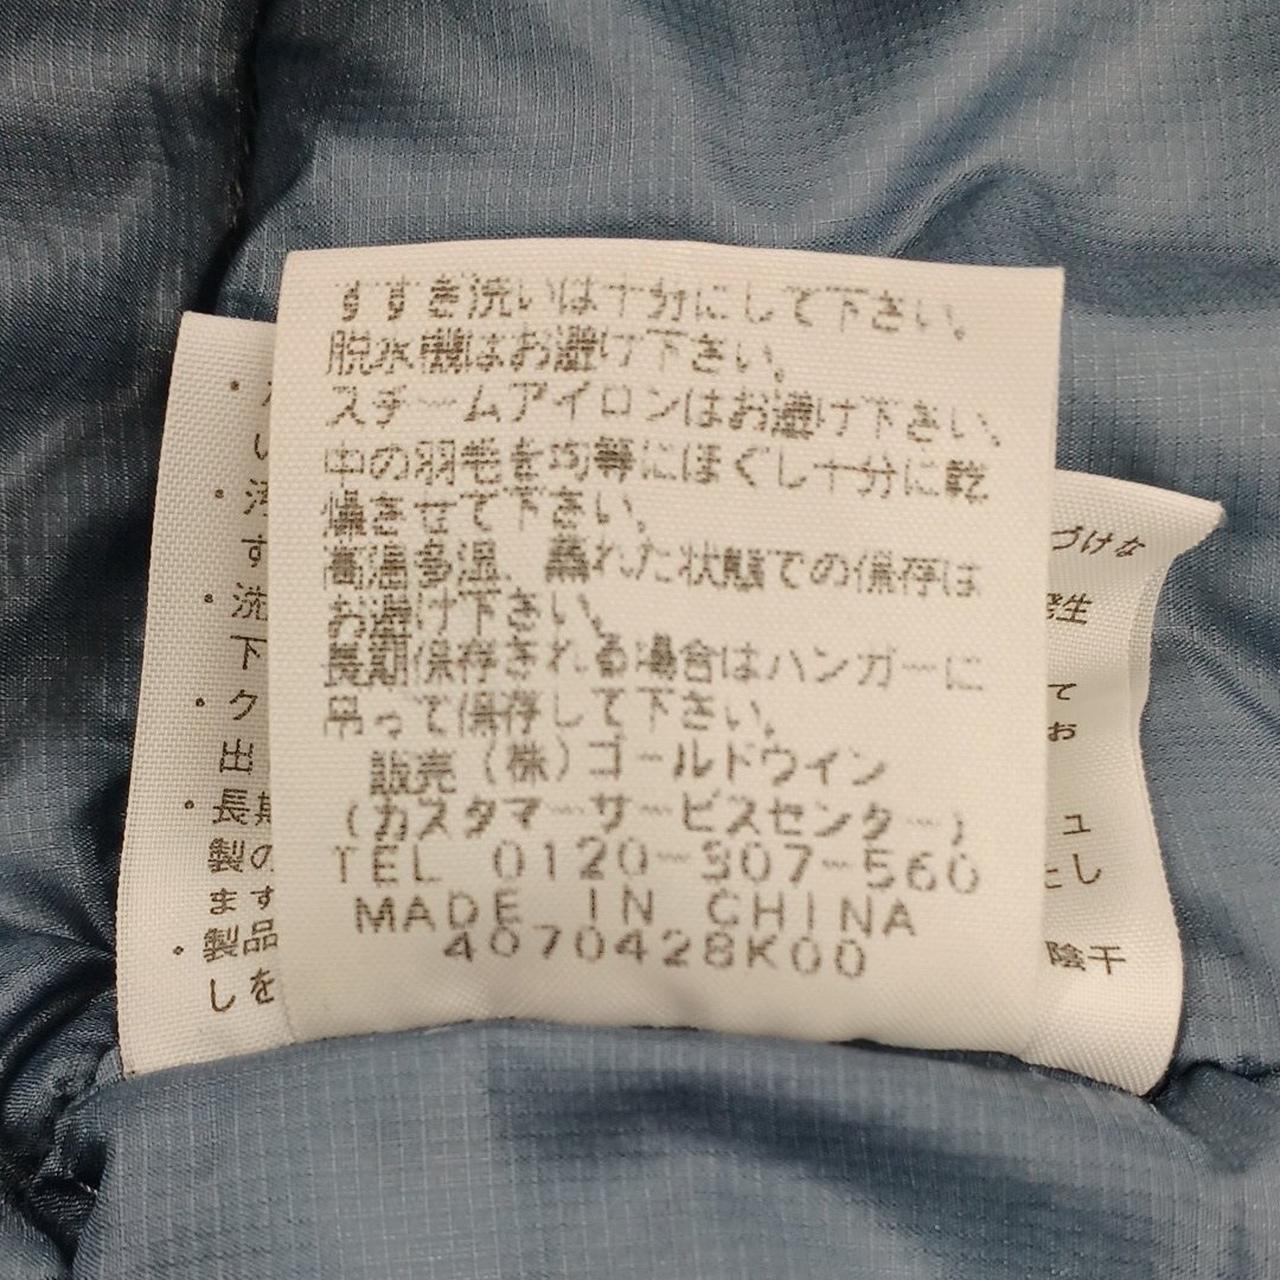 すすぎ洗いは十分にして下さい。
脱水機はお避け下さい。
スチームアイロンはお避け下さい。
中の羽毛を均等にほぐし十分に乾
燥させて下さい。
高温多湿、蒸れた状態での保存は
お避け下さい。
長期保存される場合はハンガーに
吊って保存して下さい。
販売 (株)ゴールドウイン
(カスタマーサービスセンター)
TEL 0120-307-560
MADE IN CHINA
4070428K00
い
す
・洗
下
・ク
出
・長期
製の
ます
・製品
しを
づけな
発生
て
お
ュ
とし
陰干